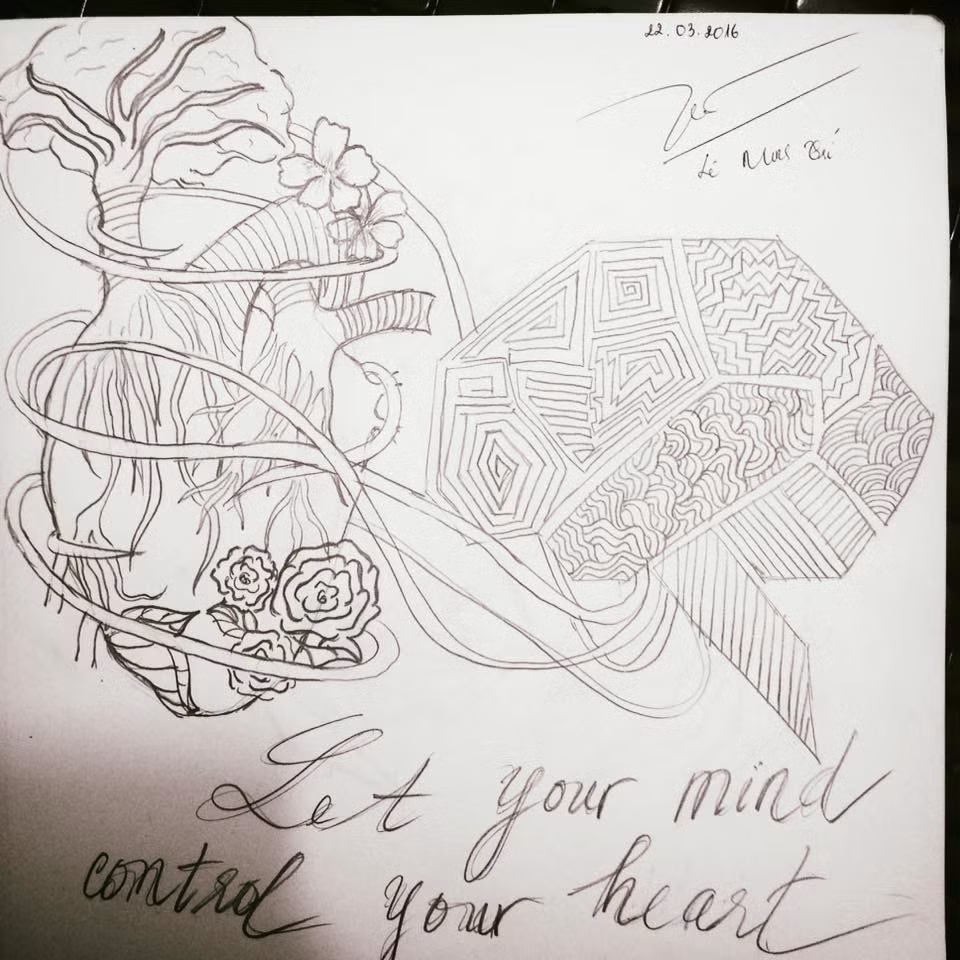 22.03.2016
Lê
Let your mind
control your heart